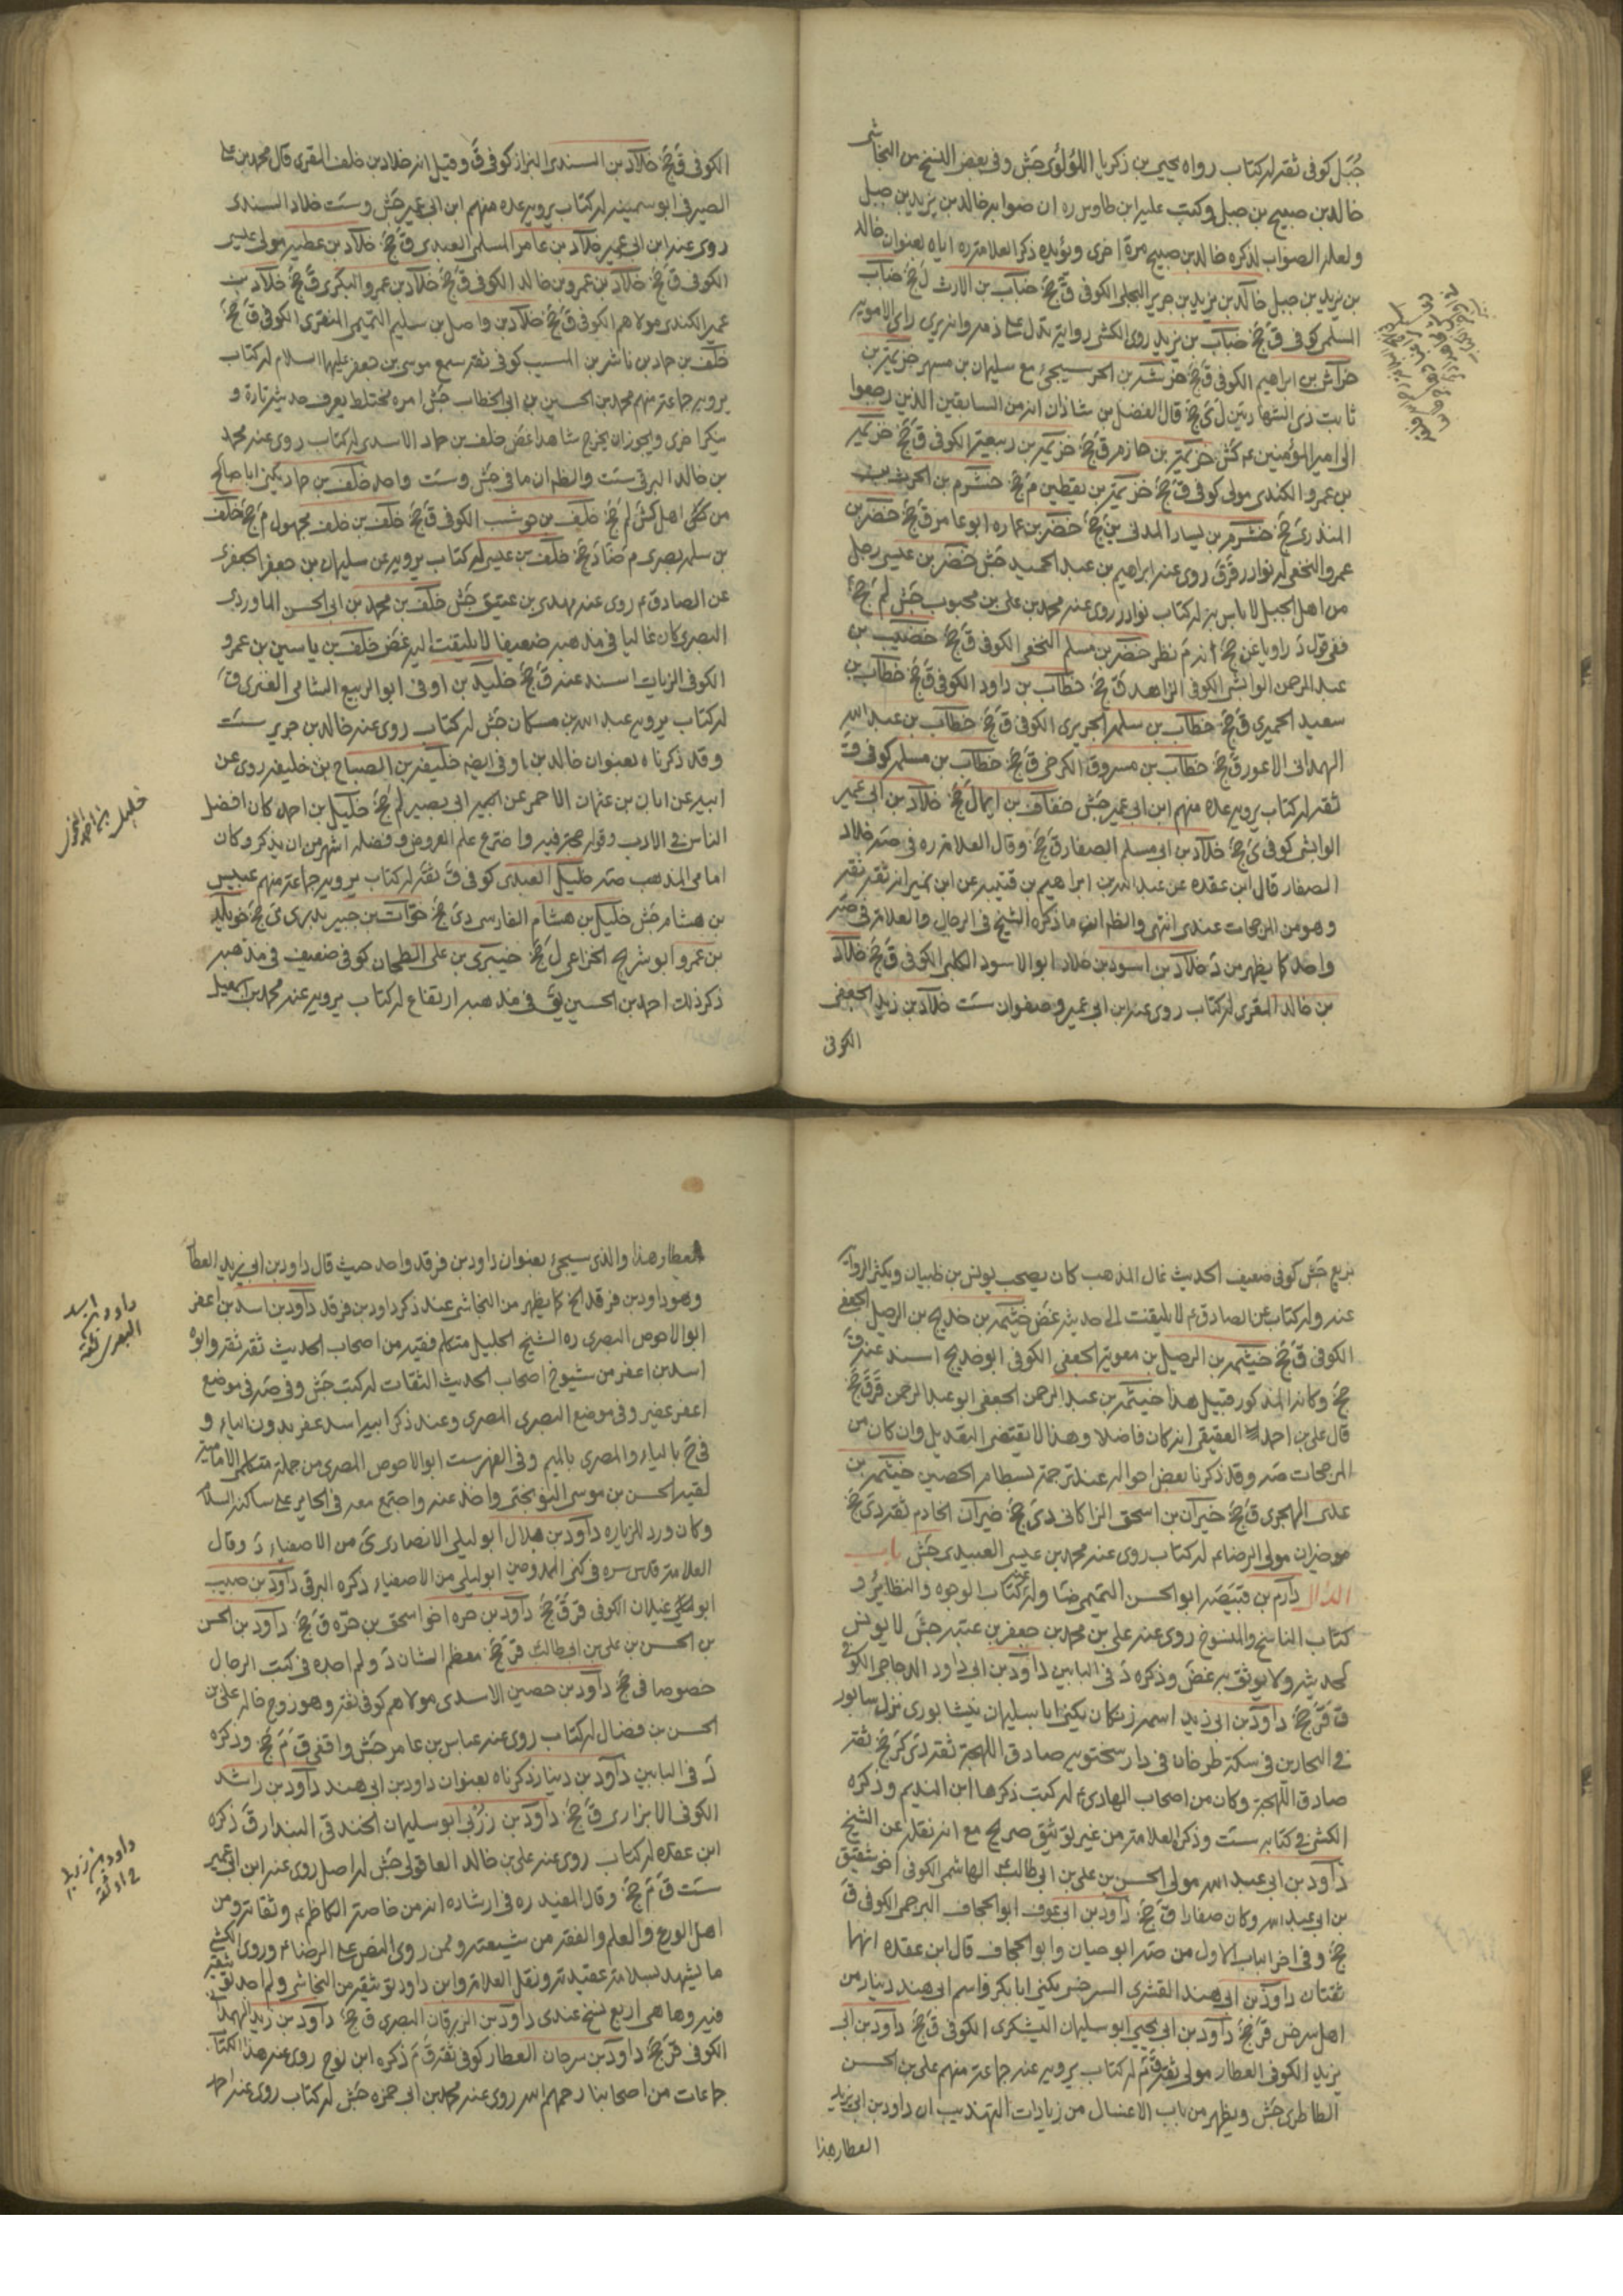 جبل كوفي ثقة له كتاب رواه يحيى بن زكريا اللؤلؤي جش وفي بعض النسخ من النجاشي
خالد بن صبيح بن جبل وكتب عليه ابن طاوس ره ان صوابه خالد بن يزيد بن جبل
ولعله الصواب لذكره خالد بن صبيح مرة اخرى ويؤيده ذكر العلامة ره اياه بعنوان خالد
بن يزيد بن جبل خالد بن يزيد بن جرير البجلي الكوفي ق جخ خباب بن الارث ل جخ خباب
السلمي كوفي ق جخ خباب بن يزيد روى الكشي رواية تدل على ذمه وانه يرى راى الاموية
خراش بن ابراهيم الكوفي ق جخ خرشة بن الحر سيجئ مع سليمان بن مسهر خزيمة بن
ثابت ذى الشهادتين ل ى جخ قال الفضل بن شاذان انه من السابقين الذين رجعوا
الى امير المؤمنين ع كش خزيمة بن حازم ق جخ خزيمة بن ربيعة الكوفي ق جخ خزيمة
بن عمرو الكندى مولى كوفي ق جخ خزيمة بن يقطين م جخ خشرم بن الحرث بن
المنذر ى جخ خشرم بن يسار المدني ين جخ خضر بن عماره ابو عامر ق جخ خضر بن
عمرو النخعي له نوادر قر ق روى عنه ابراهيم بن عبد الحميد جش خضر بن عيسى رجل
من اهل الجبل لا باس به له كتاب نوادر روى عنه محمد بن على بن محبوب جش لم جخ
ففي قول د راويا عن جخ انه م نظر خضر بن مسلم النخعي الكوفي ق جخ خضيب بن
عبد الرحمن الوابشي الكوفي الزاهد ق جخ خطاب بن داود الكوفي ق جخ خطاب بن
سعيد الحميري ق جخ خطاب بن سلمه الجريري الكوفي ق جخ خطاب بن عبد الله
الهمداني الاعور ق جخ خطاب بن مسروق الكرخي ق جخ خطاب بن مسلمه كوفي ق
ثقة له كتاب يرويه عده منهم ابن ابي عمير جش خفاف بن ايما ل جخ خلاد بن ابي عمير
الوابشي كوفي ى جخ خلاد بن ابي مسلم الصفار ق جخ وقال العلامة ره في صه خلاد
الصفار قال ابن عقده عن عبد الله بن ابراهيم بن قتيبه عن ابن نمير انه ثقة ثقة
وهو من المرجحات عندى انتهى والظ ان ما ذكره الشيخ في الرجال والعلامة في صه
واحد كما يظهر من د خلاد بن اسود بن خلاد ابو الاسود الكلبي الكوفي ق جخ خلاد
بن خالد المقرى له كتاب روى عنه ابن ابي عمير وصفوان ست خلاد بن زيد الجعفي
الكوفى
الكوفي ق جخ خلاد بن السندى البزاز كوفي ق وقيل انه خلاد بن خلف المقرى قال محمد بن على
الصيرفي ابو سمينه له كتاب يرويه عده منهم ابن ابي عمير جش وست خلاد السندى
روى عنه ابن ابي عمير خلاد بن عامر المسلى العبدى ق جخ خلاد بن عطيه مولى
الكوفي ق جخ خلاد بن عمرو بن خالد الكوفي ق جخ خلاد بن عمرو البكرى ق جخ خلاد بن
عمير الكندى مولاهم الكوفي ق جخ خلاد بن واصل بن سليم التميمي المنقرى الكوفي ق جخ
خلف بن حماد بن ناشر بن المسيب كوفي ثقة سمع موسى بن جعفر عليهما السلام له كتاب
يرويه جماعة منهم محمد بن الحسين بن ابي الخطاب جش امره مختلط يعرف حديثه تارة و
ينكر اخرى ويجوز ان يخرج شاهدا غض خلف بن حماد الاسدى له كتاب روى عنه محمد
بن خالد البرقي ست والظ ان ما في جش وست واحد خلف بن حماد يكنى ابا صالح
من اهل كش لم جخ خلف بن حوشب الكوفي ق جخ خلف بن خلف مجهول م جخ خلف
بن سلمه بصرى م ضا د جخ خلف بن عيسى له كتاب يرويه عن سليمان بن جعفر الجعفرى
عن الصادق ع روى عنه مهدى بن عتيق جش خلف بن محمد بن ابي الحسن الماوردى
البصرى كان غاليا في مذهبه ضعيفا لا يلتفت اليه غض خلف بن ياسين بن عمرو
الكوفي الزيات اسند عنه ق جخ خليد بن اوفى ابو الربيع الشامى العنزى ق
له كتاب يرويه عبد الله بن مسكان جش له كتاب روى عنه خالد بن جرير ست
وقد ذكرناه بعنوان خالد بن اوفى ايضا خليفه بن الصباح بن خليفه روى عن
ابيه عن ابان بن عثمان الاحمر عن ابي بصير لم جخ خليل بن احمد كان افضل
الناس في الادب وقوله حجة فيه واخترع علم العروض وفضله اشهر من ان يذكر وكان
امامي المذهب صه خليل العبدى كوفي ق ثقة له كتاب يرويه جماعة منهم عبيس
بن هشام جش خليل بن هشام الفارسي دى جخ خوات بن جبير بدرى ى جخ خويلد
بن عمرو ابو شريح الخزاعي ل جخ خيبرى بن على الطحان كوفي ضعيف في مذهبه
ذكر ذلك احمد بن الحسين يق في مذهبه ارتفاع له كتاب يرويه عنه محمد بن اسمعيل
خليل بن احمد النحوى
بزيع جش كوفي ضعيف الحديث غال المذهب كان يصحب يونس بن ظبيان ويكثر الرواية
عنه وله كتاب عن الصادق ع لا يلتفت الى حديثه غض خيثمه بن خديج بن الرحيل الجعفي
الكوفي ق جخ خيثمه بن الرحيل بن معوية الجعفي الكوفي ابو خديج اسند عنه ق
جخ وكانه المذكور قبيل هذا خيثمه بن عبد الرحمن الجعفي ابو عبد الرحمن قر ق جخ
قال على بن احمد العقيقي انه كان فاضلا وهذا لا يقتضى التعديل وان كان من
المرجحات صه وقد ذكرنا بعض احواله عند ترجمة بسطام بن الحصين خيثمه بن
على الهجرى ق جخ خيران بن اسحق الزاكانى دى جخ خيران الخادم ثقة دى جخ
مولى الرضا ع له كتاب روى عنه محمد بن عيسى العبيدى جش باب
الدال دارم بن قبيصه ابو الحسن التميمي ضا وله عنه كتاب الوجوه والنظائر و
كتاب الناسخ والمنسوخ روى عنه على بن محمد بن جعفر بن عنبسه جش لا يونس
بحديثه ولا يوثق به غض وذكره د في البابين داود بن ابي داود الدجاجي الكوفي
ق قر جخ داود بن ابي زيد اسمه زنكان يكنى ابا سليمان نيشابورى نزل سابور
في النجارين في سكة طرخان في دار سختويه صادق اللهجة ثقة دى كر جخ ثقة
صادق اللهجة وكان من اصحاب الهادى ع له كتب ذكرها ابن النديم وذكره
الكشي في كتابه ست وذكره العلامة من غير توثيق صريح مع انه نقله عن الشيخ
داود بن ابي عبد الله مولى الحسن بن على بن ابي طالب الهاشمى الكوفي اخو شقيق
بن ابي عبد الله وكان صفارا ق جخ داود بن ابي عوف ابو الجحاف البرجمى الكوفي ق
جخ وفي اخر الباب الاول من صه ابو حيان وابو الجحاف قال ابن عقده انهما
ثقتان داود بن ابي هند القشرى السرخسي يكنى ابا بكر واسم ابي هند دينار من
اهل سرخس قر جخ داود بن ابي يحيى ابو سليمان اليشكرى الكوفي ق جخ داود بن ابي
يزيد الكوفي العطار مولى ثقة ق م له كتاب يرويه عنه جماعة منهم على بن الحسن
الطاطرى جش ويظهر من باب الاغسال من زيادات التهذيب ان داود بن ابي يزيد
العطار هذا
العطار هذا والذى سيجئ بعنوان داود بن فرقد واحد حيث قال داود بن ابي يزيد العطار
وهو داود بن فرقد الخ كما يظهر من النجاشي عند ذكر داود بن فرقد داود بن اسد بن اعفر
ابو الاحوص البصرى ره الشيخ الجليل متكلم فقيه من اصحاب الحديث ثقة ثقة وابوه
اسد بن اعفر من شيوخ اصحاب الحديث الثقات له كتب جش وفي صه في موضع
اعفر عفير وفي موضع البصرى المصرى وعند ذكر ابيه اسد عفر بدون الياء و
في ح بالياء والمصرى بالميم وفي الفهرست ابو الاحوص المصرى من جملة متكلمى الامامية
لقيه الحسن بن موسى النوبختى واخذ عنه واجتمع معه في الحاير على ساكنه السلام
وكان ورد للزياره داود بن بلال ابو ليلى الانصارى ى من الاصفياء د وقال
العلامة قدس سره في كنى الممدوحين ابو ليلى من الاصفياء ذكره البرقي داود بن حبيب
ابو غيلان الكوفي قر ق جخ داود بن حره اخو اسحق بن حره ق جخ داود بن الحسن
بن الحسن بن على بن ابي طالب قر جخ معظم الشان د ولم اجده في كتب الرجال
خصوصا في جخ داود بن حصين الاسدى مولاهم كوفي ثقة وهو زوج خالة على بن
الحسن بن فضال له كتاب روى عنه عباس بن عامر جش واقفي ق م جخ وذكره
د في البابين داود بن دينار ذكرناه بعنوان داود بن ابي هند داود بن راشد
الكوفي الابزارى ق جخ داود بن زربي ابو سليمان الخندقي البندار ق ذكره
ابن عقده له كتاب روى عنه على بن خالد العاقولى جش له اصل روى عنه ابن ابي عمير
ست ق م جخ وقال المفيد ره في ارشاده انه من خاصة الكاظم ع وثقاته ومن
اهل الورع والعلم والفقه من شيعته وممن روى النص على الرضا ع وروى الكشي
ما يشهد بسلامة عقيدته ونقل العلامة وابن داود توثيقه من النجاشي ولم اجد توثيقه
فيه وها هى اربع نسخ عندى داود بن الزبرقان البصرى ق جخ داود بن زيد الهمدانى
الكوفي قر جخ داود بن سرحان العطار كوفي ثقة ق م ذكره ابن نوح روى عنه هذا الكتاب
جماعات من اصحابنا رحمهم الله روى عنه محمد بن ابي حمزه جش له كتاب روى عنه احمد
داود بن اسد
البصرى ثقة
داود بن زربى